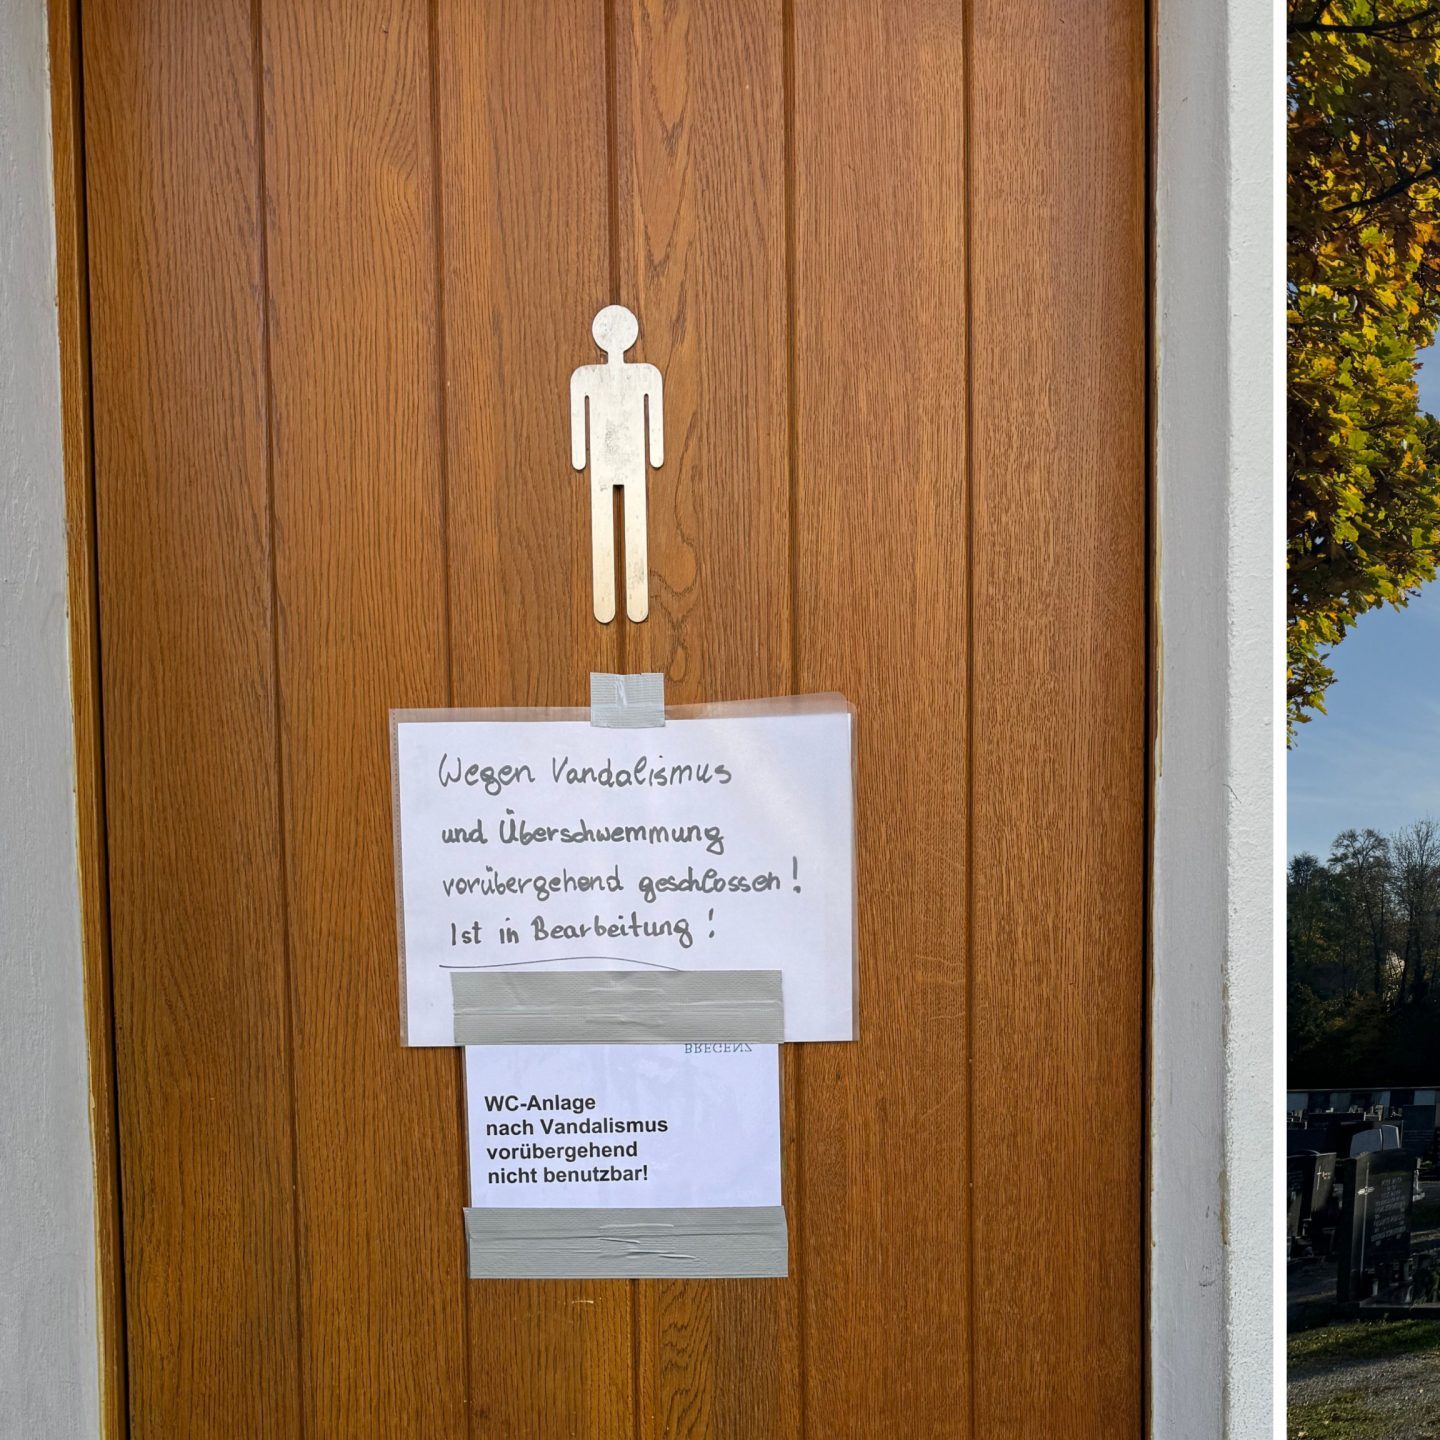 Wegen Vandalismus
und Überschwemmung
vorübergehend geschlossen!
Ist in Bearbeitung!
BREGENZ
WC-Anlage
nach Vandalismus
vorübergehend
nicht benutzbar!